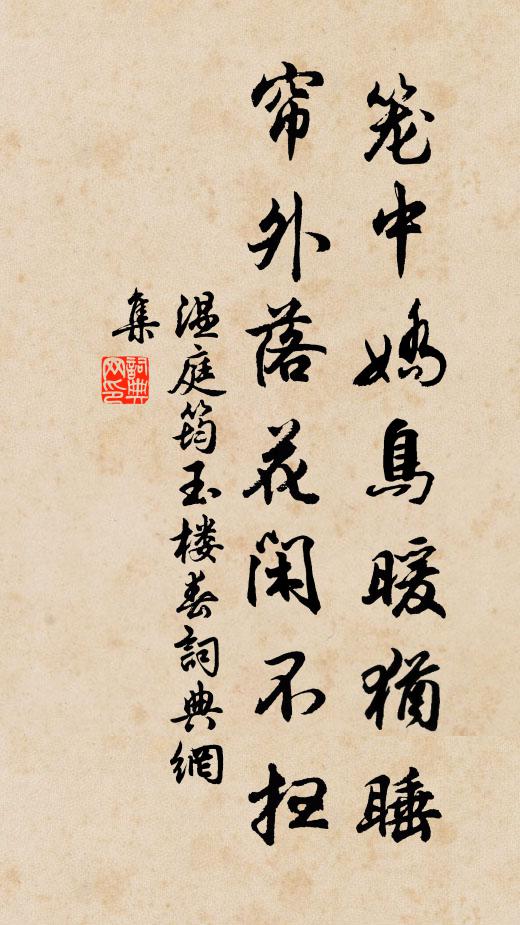 笼中娇鸟暖犹睡
帘外落花闲不扫
温庭筠玉楼春詞典網
集
詞典
网印